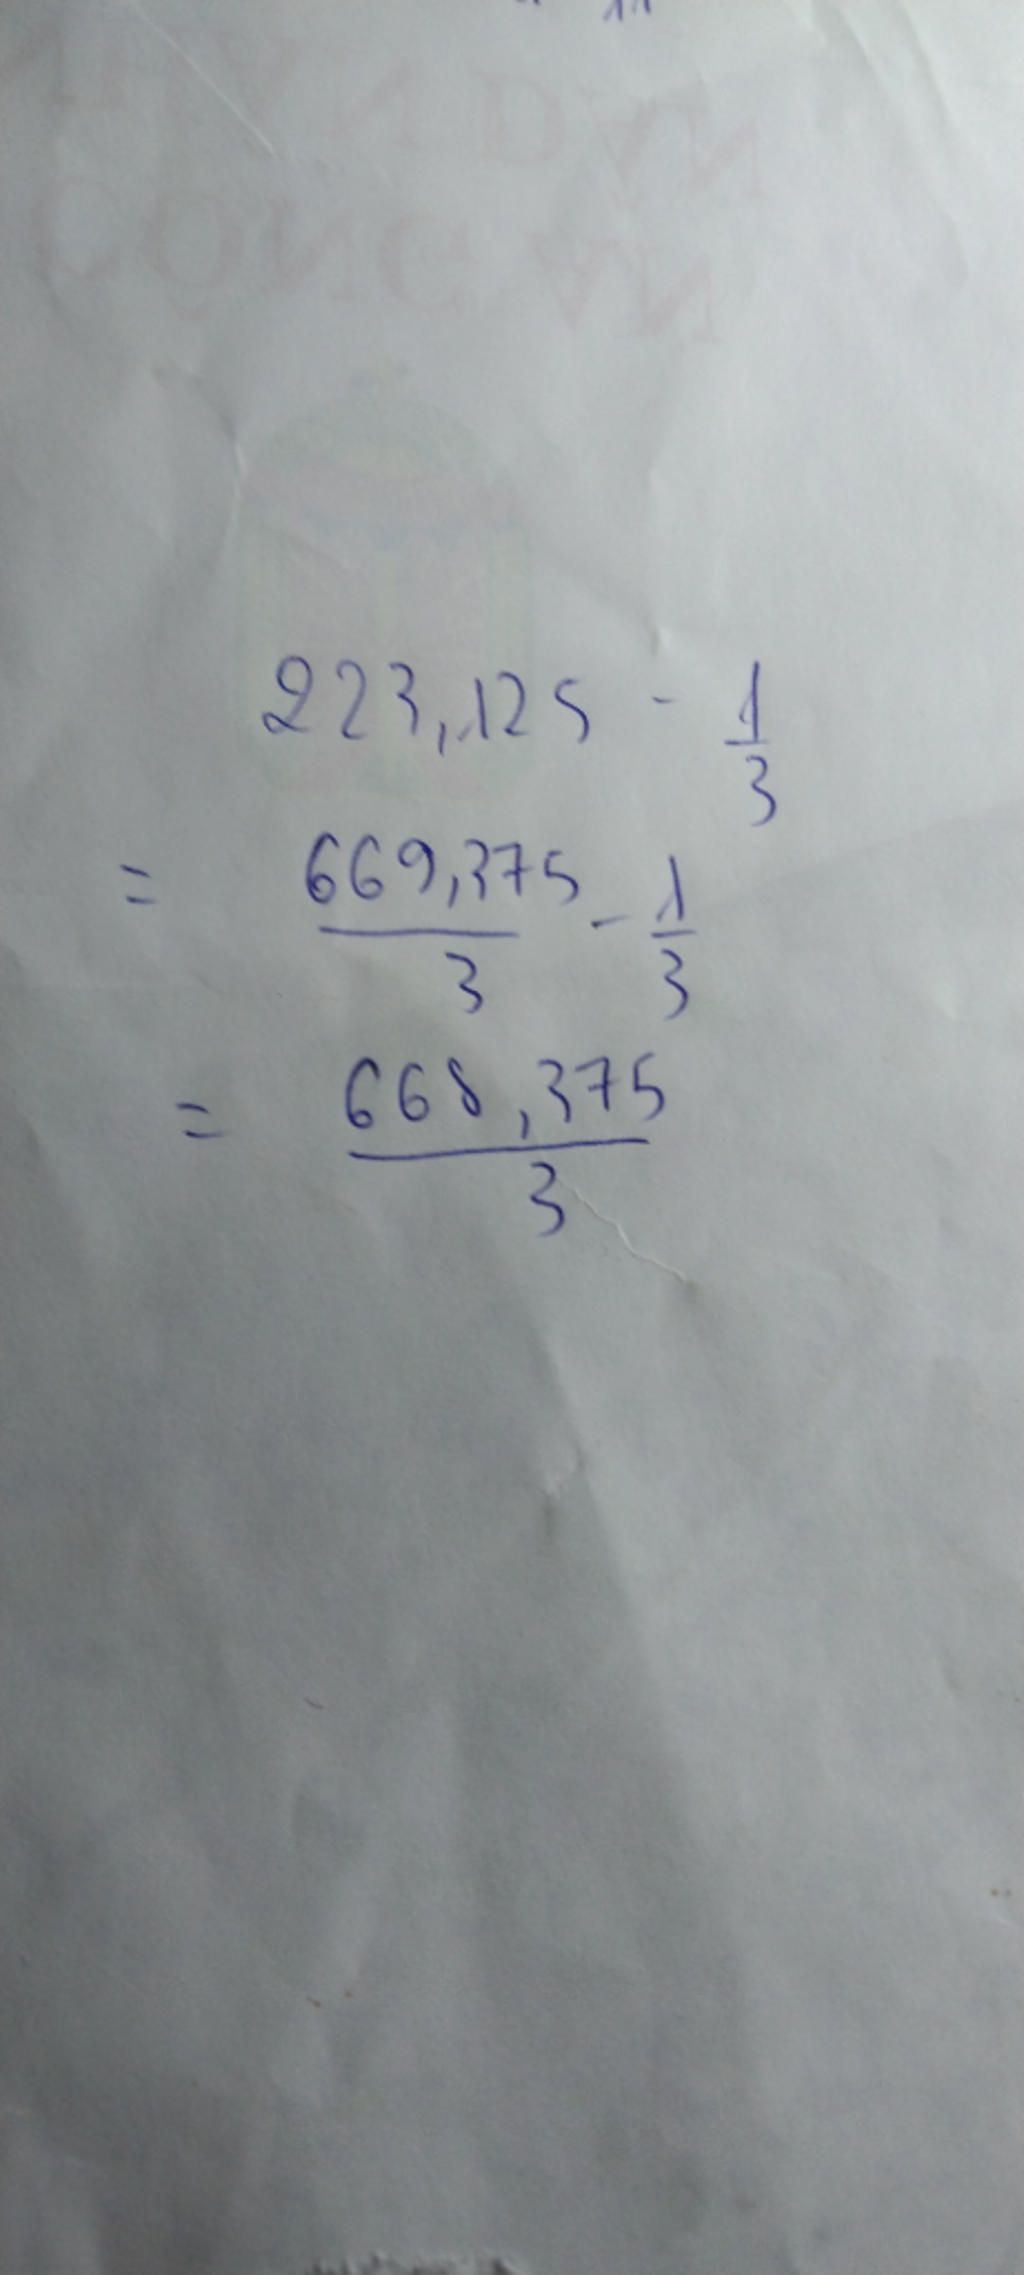 223,125 - 1/3
= 669,375/3 - 1/3
= 668,375/3